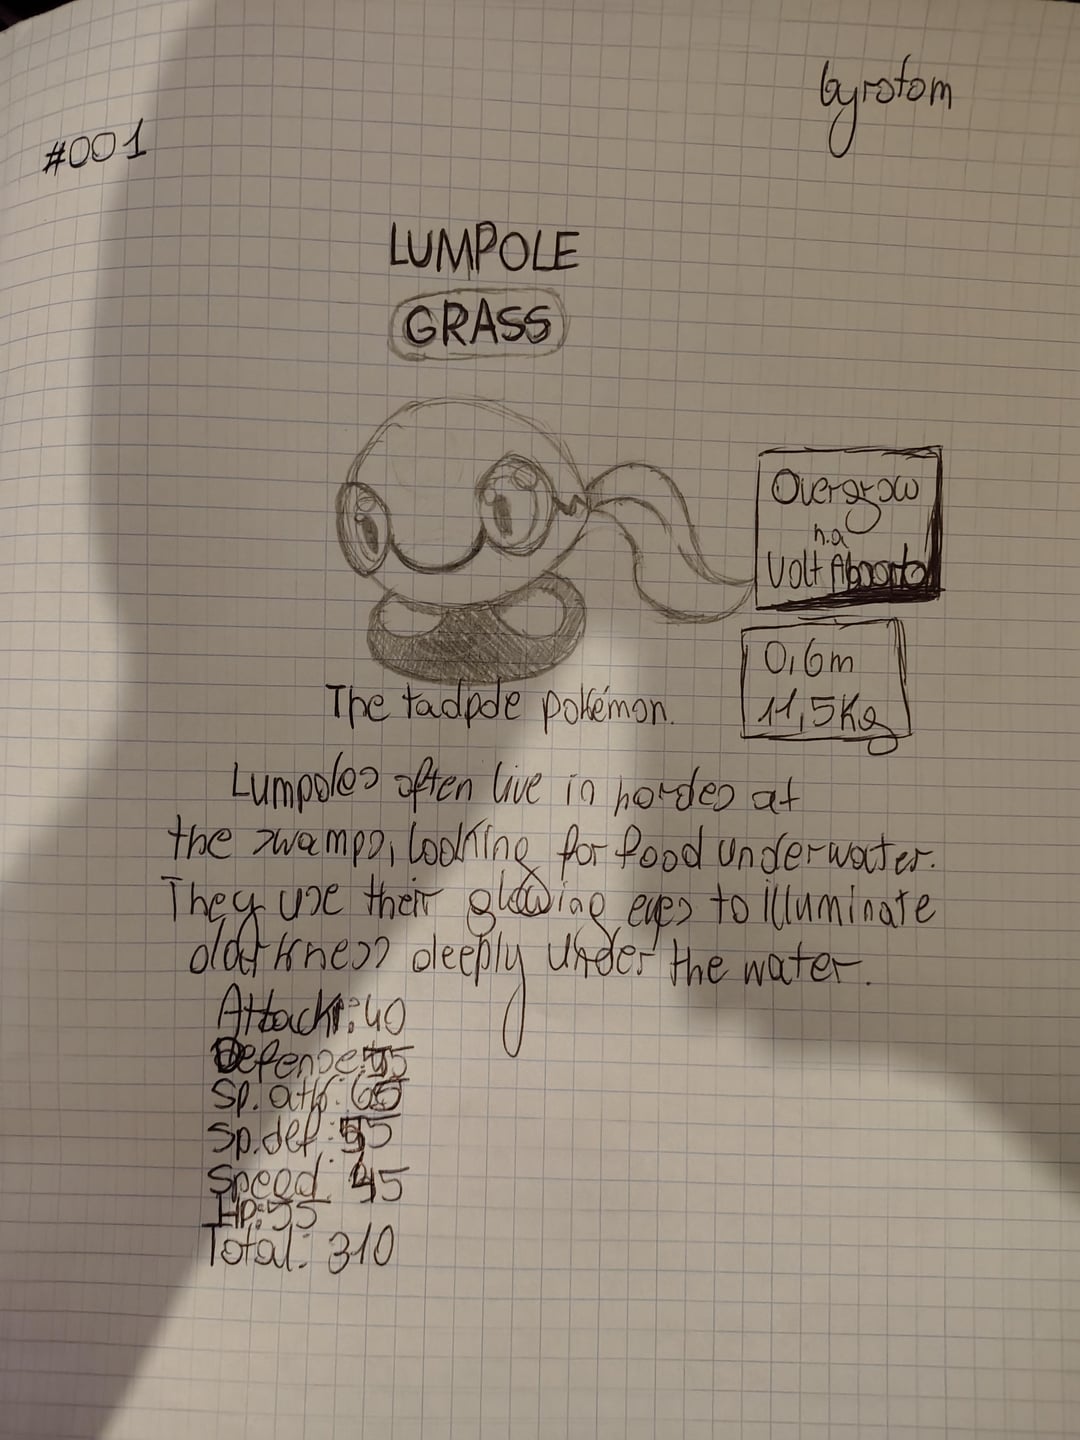 byrotom
#001
LUMPOLE
GRASS
Overgrow
h.a
Volt Absorb
0,6m
11,5Kg
The tadpole pokémon.
Lumpoles often live in hordes at
the swamps, looking for food underwater.
They use their glowing eyes to illuminate
darkness deeply under the water.
Attack: 40
Defense: 55
Sp. atk: 60
Sp. def: 55
Speed: 45
HP: 55
Total: 310